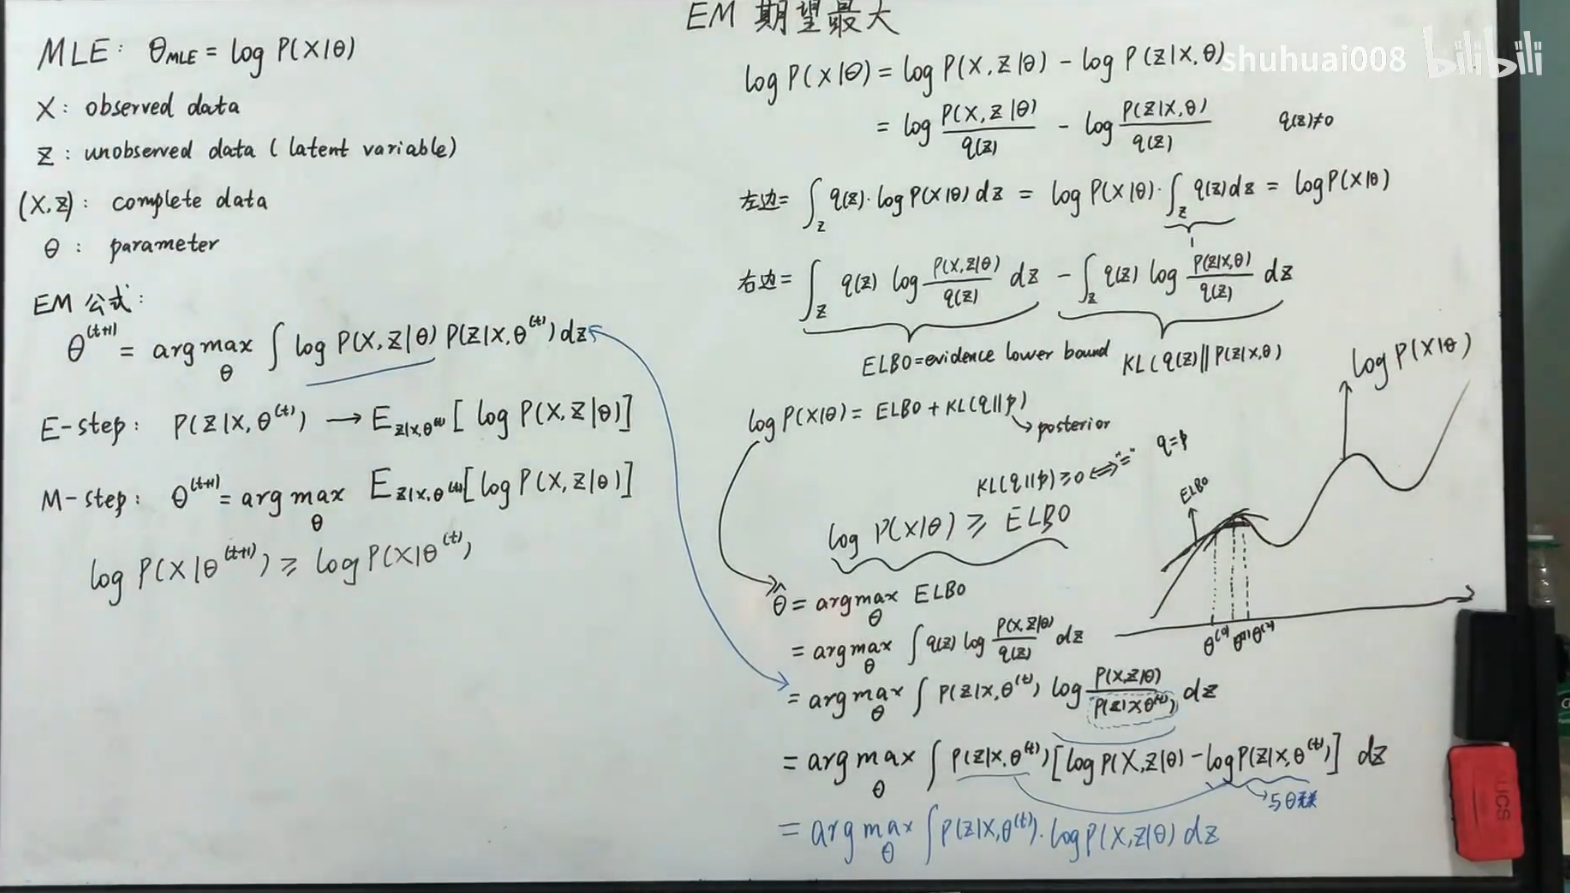 EM 期望最大
MLE: θ_MLE = log P(X|θ)
X: observed data
Z: unobserved data (latent variable)
(X,Z): complete data
θ: parameter
EM 公式:
θ^(t+1) = arg max_θ ∫ log P(X,Z|θ) P(Z|X,θ^(t)) dz
E-step: P(Z|X,θ^(t)) → E_Z|X,θ^(t) [log P(X,Z|θ)]
M-step: θ^(t+1) = arg max_θ E_Z|X,θ^(t) [log P(X,Z|θ)]
log P(X|θ^(t+1)) ≥ log P(X|θ^(t))
shuhuai008 bilibili
log P(X|θ) = log P(X,Z|θ) - log P(Z|X,θ)
= log P(X,Z|θ)/q(z) - log P(Z|X,θ)/q(z) q(z)≠0
左边= ∫_Z q(z)·log P(X|θ) dz = log P(X|θ)·∫_Z q(z)dz = log P(X|θ)
1
右边= ∫_Z q(z) log P(X,Z|θ)/q(z) dz - ∫_Z q(z) log P(Z|X,θ)/q(z) dz
ELBO=evidence lower bound KL(q(z)||P(Z|X,θ))
log P(X|θ) = ELBO + KL(q||p)
→ posterior
KL(q||p)≥0 ⟺ "=" q=p
log P(X|θ) ≥ ELBO
θ̂ = arg max_θ ELBO
= arg max_θ ∫ q(z) log P(X,Z|θ)/q(z) dz
= arg max_θ ∫ P(Z|X,θ^(t)) log P(X,Z|θ)/P(Z|X,θ^(t)) dz
= arg max_θ ∫ P(Z|X,θ^(t)) [log P(X,Z|θ) - log P(Z|X,θ^(t))] dz
→与θ无关
= arg max_θ ∫ P(Z|X,θ^(t))·log P(X,Z|θ) dz
log P(X|θ)
ELBO
UCS